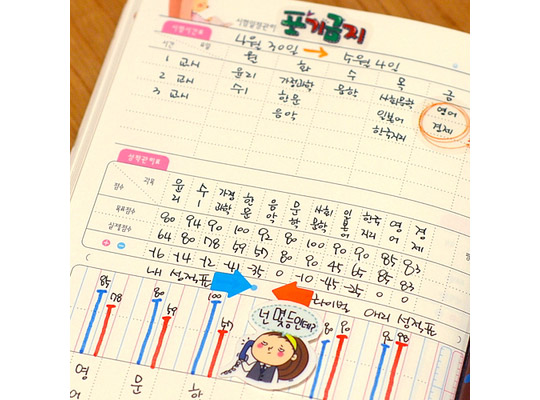 시험일정관리 포기금지
시험시간표
4월 30일 → 5월 4일
시간 요일 월 화 수 목 금
1 교시 윤리 가정과학 문학 사회문화 영어
2 교시 수1 한문 일본어 경제
3 교시 음악 한국지리
성적관리표
점수 과목 윤리 수1 가정과학 한문 음악 문학 사회문화 일본어 한국지리 영어 경제
목표점수 80 94 90 100 92 80 100 90 90 85 83
실제점수 64 80 78 59 57 80 90 45 65 85 83
-16 -14 -12 -41 -35 0 -10 -45 -35 0 0
내 성적표 라이벌 애리 성적표
85 78 80 59 100 57 80 90 92 98
넌 몇등인데?
영어 문 한